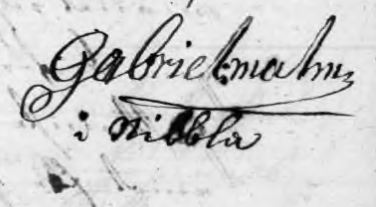 Gabriel malm
i Nibbla